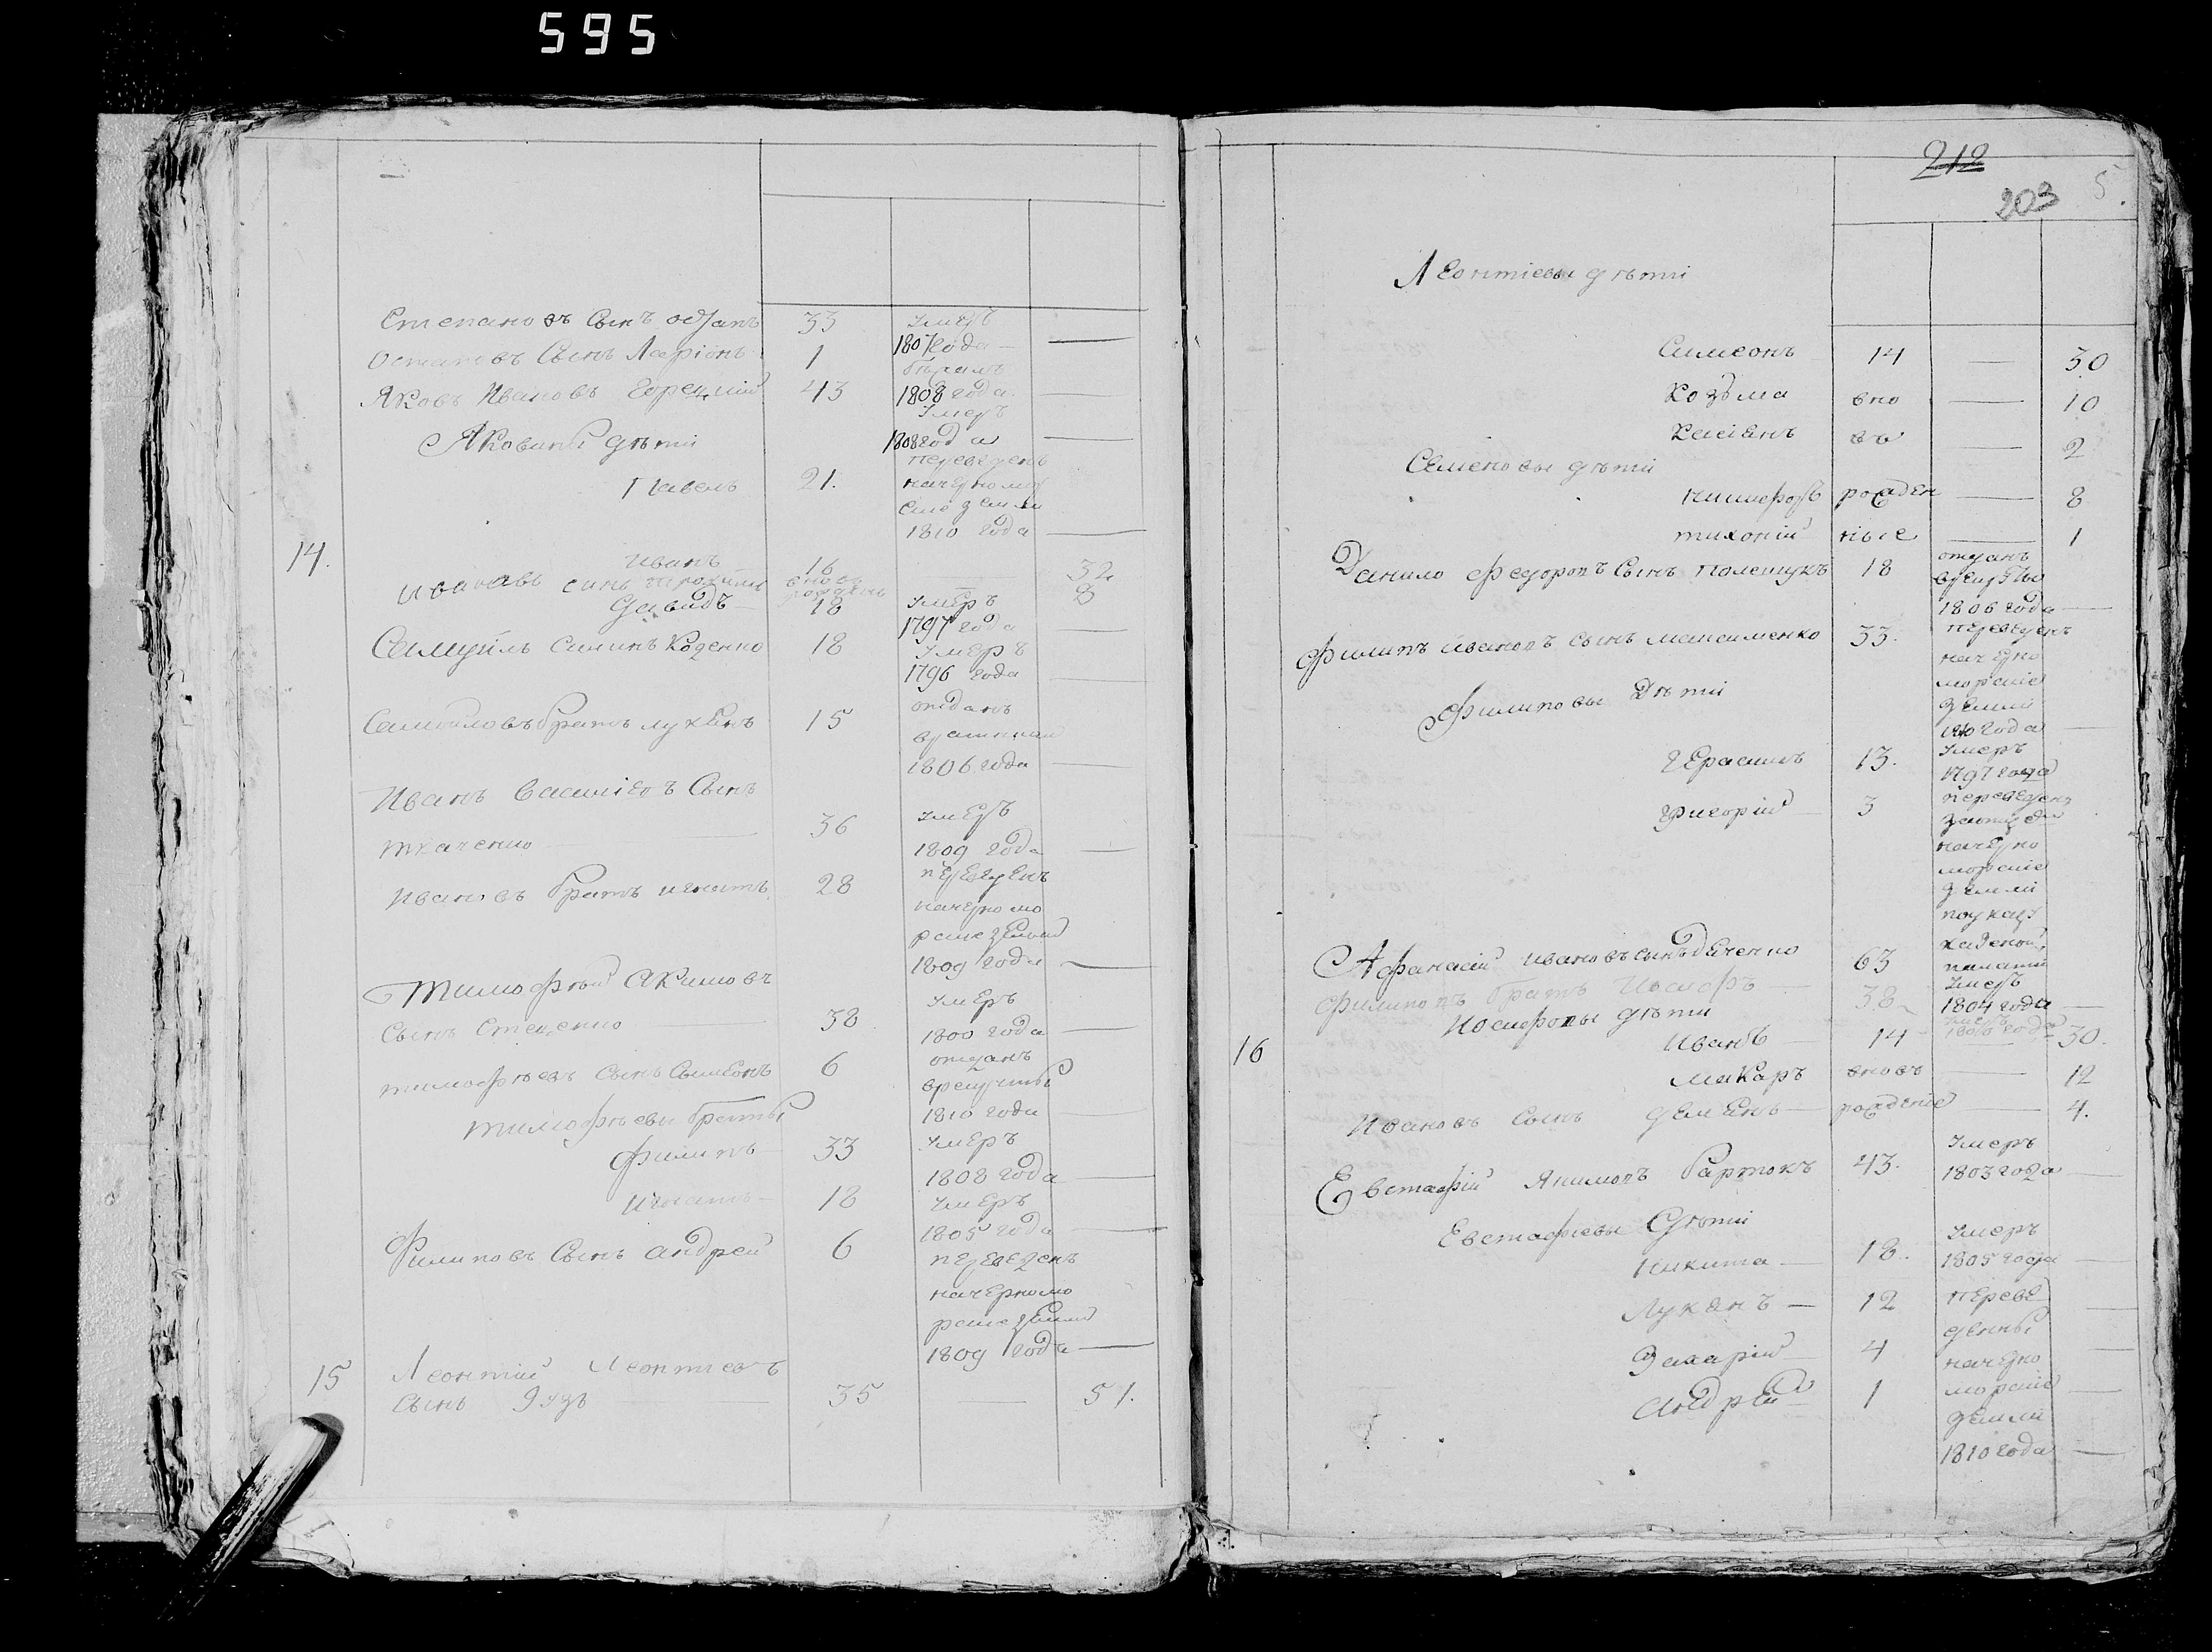 595
Степановъ Сынъ
33
умеръ
1807 года —
Остаповъ Сынъ Ларіонъ
1
бѣжалъ
1808 года —
Яковъ Ивановъ
43
умеръ
1808 года —
Яковины дѣти
Павелъ
21.
переведенъ
1810 года —
14.
Иванъ
16
—
32
Ивановъ синъ Трохимъ
вновь
рожденъ
8
Давидъ —
18
умеръ
1797 года —
Самуйлъ Козенко
18
умеръ
1796 года —
Самойловъ братъ Лукянъ
15
отданъ
1806 года —
Иванъ Василіевъ Сынъ
Ткаченко —
36
умеръ
1809 года —
Ивановъ братъ Игнатъ
28
переведенъ
на черномо
рские земли
1809 года —
Тимофѣй Акимовъ
Сынъ Стеценко —
38
умеръ
1800 года —
Тимофѣевъ Сынъ Сымеонъ
6
отданъ
в рекруты
1810 года —
Тимофѣевы братьы
Филипъ —
33
умеръ
1808 года —
Игнатъ —
18
умеръ
1805 года —
Филиповъ Сынъ Андрей
6
переведенъ
на черномо
рские земли
1809 года —
15
Леонтій Леонтиевъ
Сынъ Зузъ —
35
—
51.
212
203
5.
Леонтіевы дѣти
Симеонъ
14
—
30
Козьма
вно
—
10
Касіянъ
въ
—
2
Семеновы дѣти
Никифоръ
рожден
—
8
Тихоній
ные
—
1
Данило Федоровъ Сынъ Полещукъ
18
отданъ
в рекруты
1806 года —
Филипъ Ивановъ сынъ Максименко
33.
переведенъ
на черно
морские
земли
1810 года —
Филиповы Дѣти
Герасимъ
13.
умеръ
1797 года
Григорій
3
переведенъ
на черно
морские
земли
по указу
казеной
палаты
Афанасій Ивановъ сынъ Дяченко
63
умеръ
1804 года —
Филиповъ братъ Иосифъ —
38
умеръ
1806 года —
Иосифовы дѣти
16
Иванъ —
14
—
30.
Макаръ
вновь
—
12
Ивановъ Сынъ Демянъ —
рожденіе
—
4.
Евстафій Якимовъ Бартокъ
43.
умеръ
1803 года —
Евстафіевы Дѣти
Никита —
18.
умеръ
1805 года —
Лукянъ —
12
переве
—
дены
Захарій
4
на черно
—
Андрей
1
морские
—
земли
1810 года —